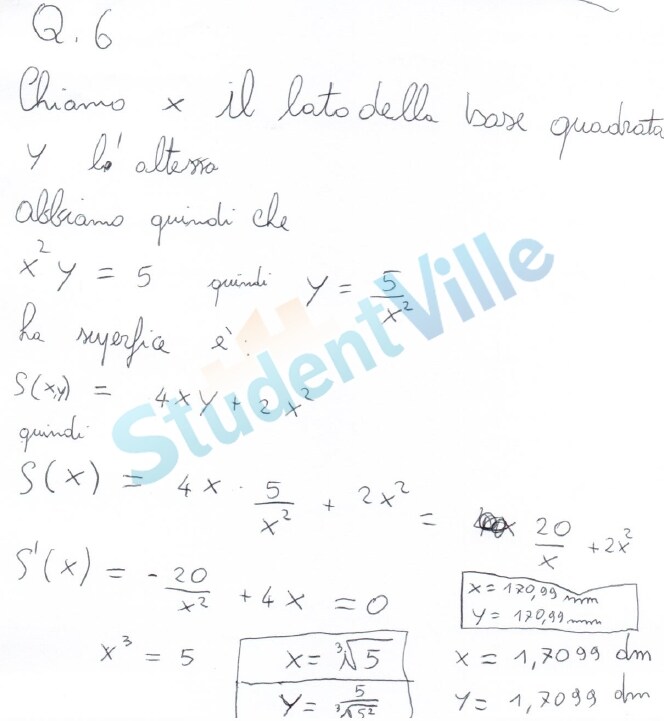 Q.6
Chiamo x il lato della base quadrata
y l'altezza
abbiamo quindi che
x² y = 5 quindi y = 5/x²
La superfice è:
S(x,y) = 4xy + 2x²
quindi
S(x) = 4x · 5/x² + 2x² = 20/x + 2x²
S'(x) = -20/x² + 4x = 0
x = 170,99 mm
y = 170,99 mm
x³ = 5
x = ³√5
x = 1,7099 dm
y = 5/³√5²
y = 1,7099 dm
StudentVille